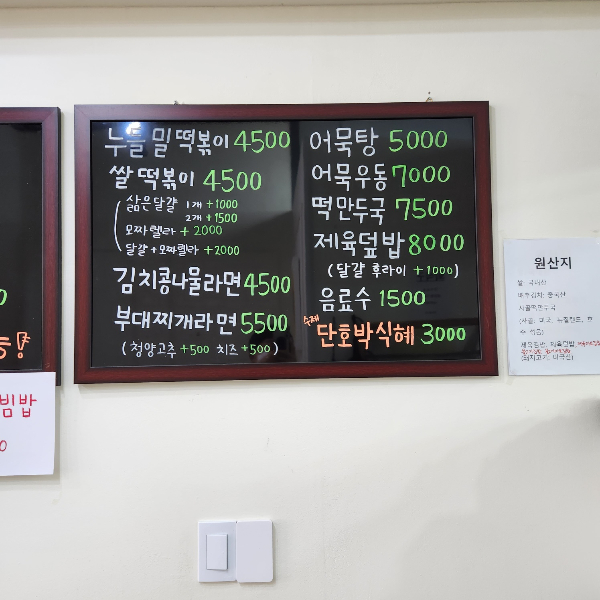 누들밀떡볶이 4500
쌀떡볶이 4500
삶은달걀 1개 +1000
2개 +1500
모짜렐라 + 2000
달걀+모짜렐라 +2000
김치콩나물라면 4500
부대찌개라면 5500
(청양고추 +500 치즈 +500)
어묵탕 5000
어묵우동 7000
떡만두국 7500
제육덮밥 8000
(달걀 후라이 +1000)
음료수 1500
수제 단호박식혜 3000
원산지
쌀: 국내산
배추김치: 중국산
사골떡만두국
제육김밥, 제육덮밥
(돼지고기: 미국산)
빔밥